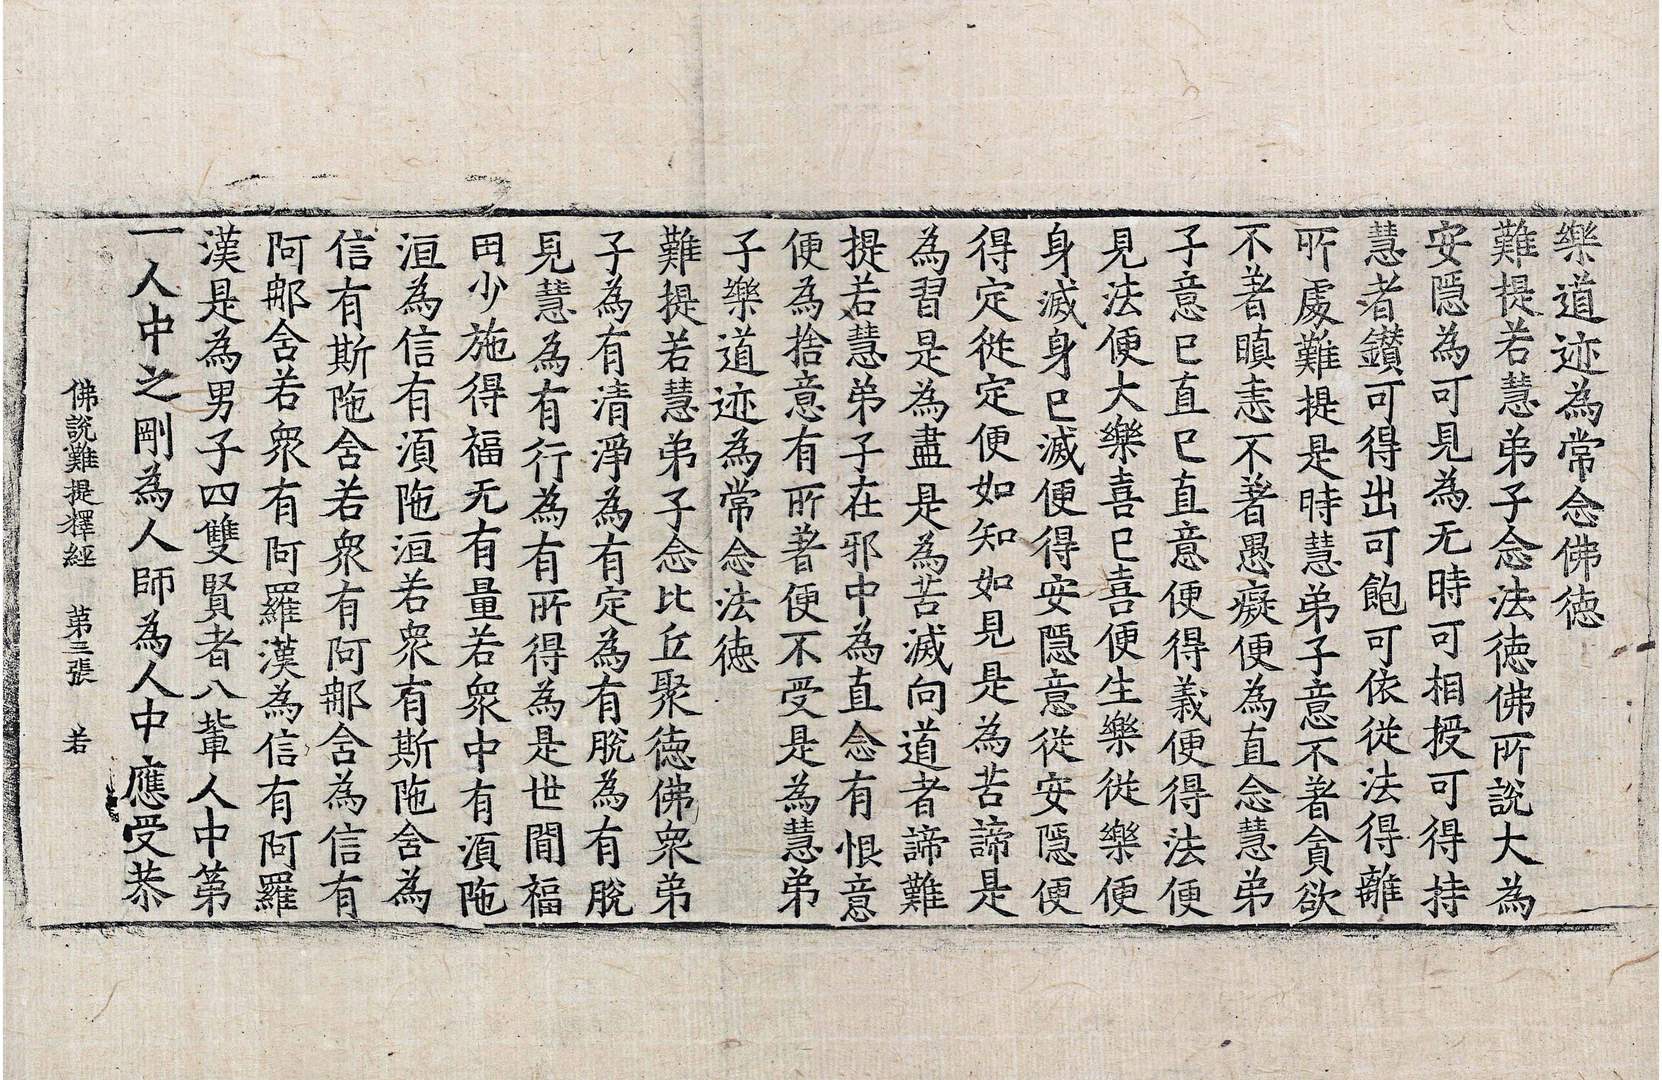 樂道迹為常念佛德
難提若慧弟子念法德佛所說大為
安隱為可見為无時可相授可得持
慧者鑽可得出可飽可依從法得離
所處難提是時慧弟子意不著貪欲
不著瞋恚不著愚癡便為直念慧弟
子意已直已直意便得義便得法便
見法便大樂喜已喜便生樂從樂便
身滅身已滅便得安隱意從安隱便
得定從定便如知如見是為苦諦是
為習是為盡是為苦滅向道者諦難
提若慧弟子在邪中為直念有恨意
便為捨意有所著便不受是為慧弟
子樂道迹為常念法德
難提若慧弟子念比丘聚德佛衆弟
子為有清淨為有定為有脫為有脫
見慧為有行為有所得為是世間福
田少施得福无有量若衆中有湏陁
洹為信有湏陁洹若衆有斯陁舍為
信有斯陁舍若衆有阿那舍為信有
阿那舍若衆有阿羅漢為信有阿羅
漢是為男子四雙賢者八輩人中第
一人中之剛為人師為人中應受恭
佛說難提釋經 第三張 若